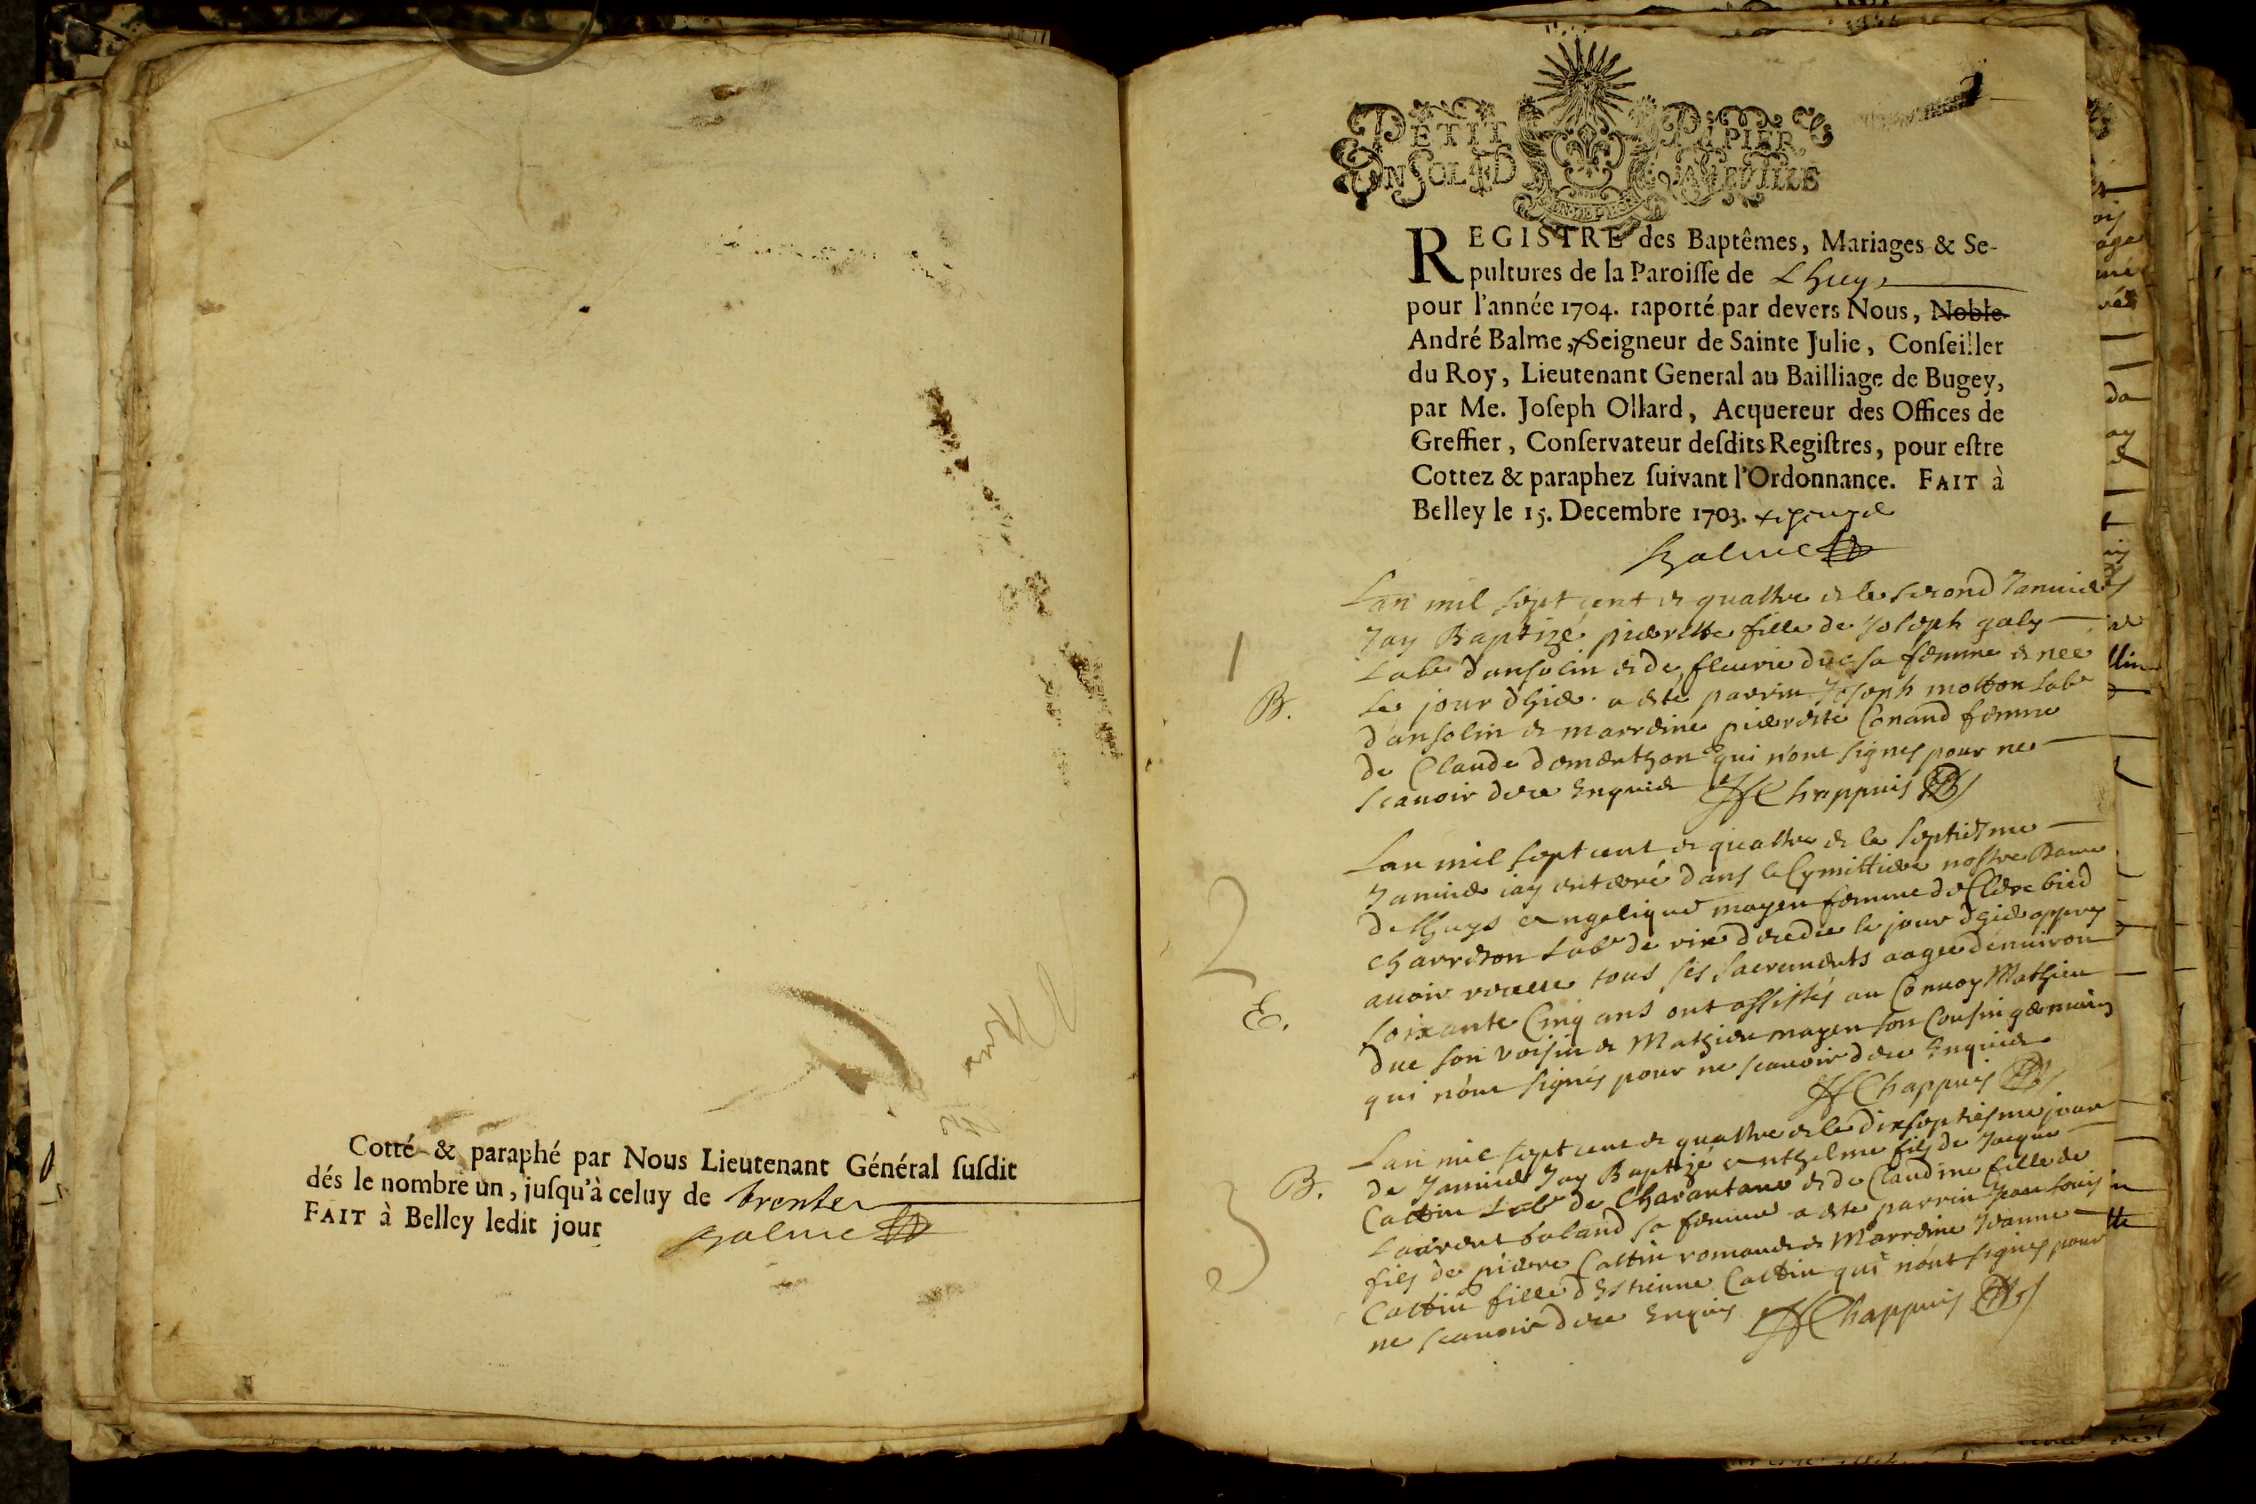 Cotté & paraphé par Nous Lieutenant Général susdit
dés le nombre un, jusqu'à celuy de trente
FAIT à Belley ledit jour
Balme
PETIT PAPIER
UN SOL 4D LA FEUILLE
REGISTRE des Baptêmes, Mariages & Se-
pultures de la Paroisse de Lhuys
pour l'année 1704. raporté par devers Nous, Noble
André Balme, Seigneur de Sainte Julie, Conseiller
du Roy, Lieutenant General au Bailliage de Bugey,
par Me. Joseph Ollard, Acquereur des Offices de
Greffier, Conservateur desdits Registres, pour estre
Cottez & paraphez suivant l'Ordonnance. FAIT à
Belley le 15. Decembre 1703.
Balme
Lan mil sept cent et quattre et le second Januier
1
Jay Baptizé pierrette fille de Joseph galy
Labr dansolin et de fleurie duc sa femme et nee
B.
le jour dhier a esté parrin Joseph motton labr
dansolin et marreine pierrette Conand femme
de Claude domenthon qui n'ont signes pour ne
scauoir de ce Enquis JfChappuis
Lan mil sept cent et quattre et le septiesme
2
Januier jay enterré dans le Cymittiere nostre Dame
de lhuys Angelique mayen femme de
charreton Labr de rix decedee le jour dhier appres
auoir receu tous ses sacrements aagee denuiron
E.
soixante Cinq ans ont assistés au Conuoy Mathieu
duc son voisin et Mathieu mayen son Cousin germain
qui n'ont signés pour ne scauoir de ce Enquis
JfChappuis
Lan mil sept cent et quattre et le dixseptiesme jour
3
B.
de Januier Jay Baptizé Anthelme fils de Jacque
Cattin Labr de Charantane et de Claudine fille de
Laurent boland sa femme a esté parrin Jean louis
fils de pierre Cattin et Marreine Jeanne
Cattin fille d'Estienne Cattin qui n'ont signes pour
ne scauoir de ce Enquis JfChappuis